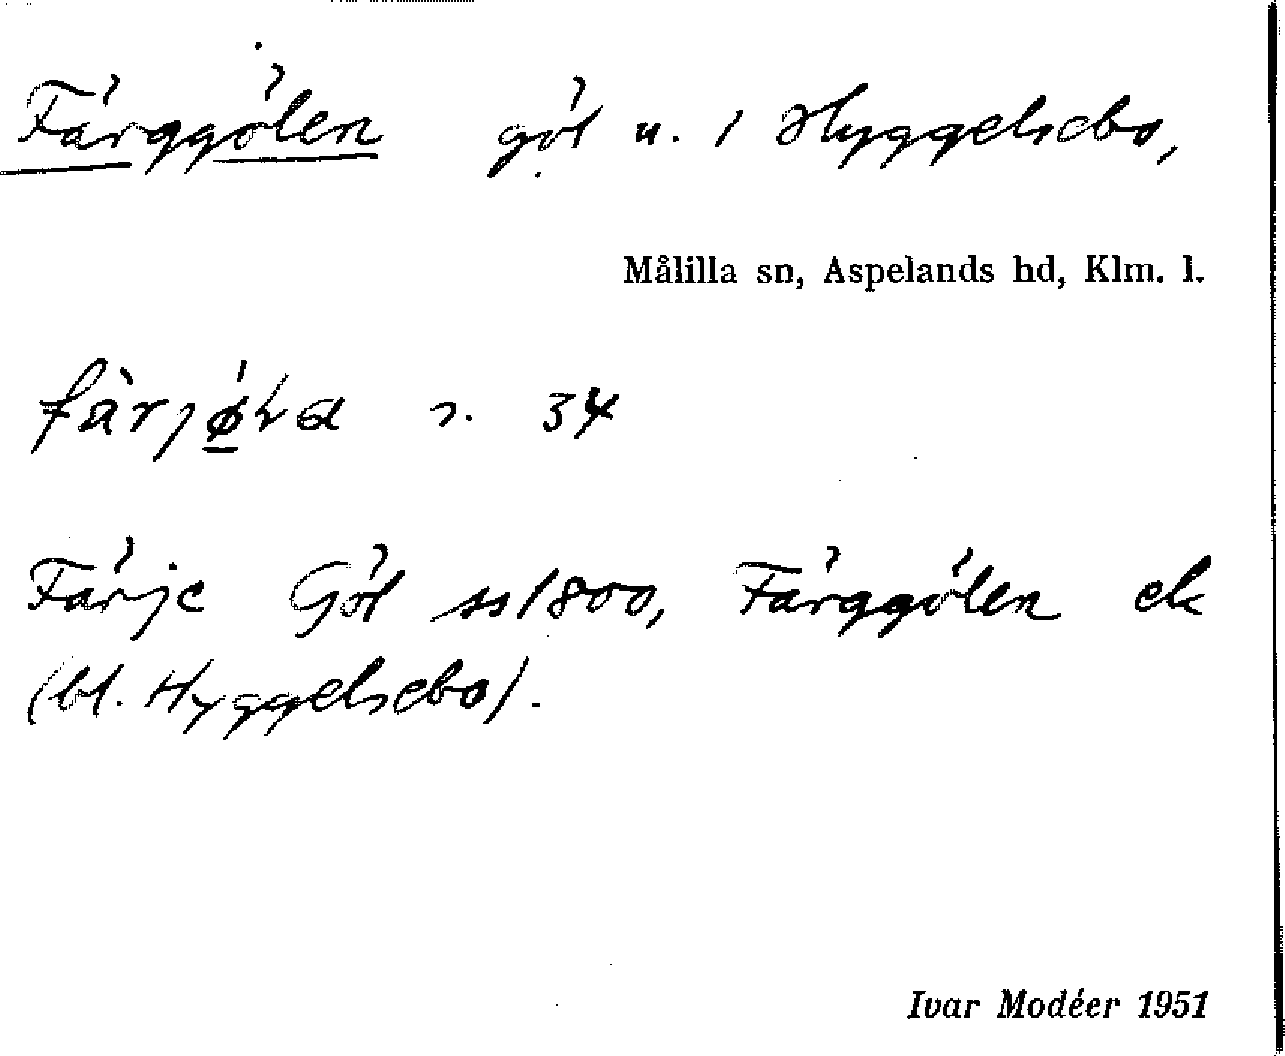 Färggölen göl n. i Hyggelsebo,
Målilla sn, Aspelands hd, Klm. l.
s. 34
Färje Göl ss 1800, Färggölen ek
(bl. Hyggelsebo).
Ivar Modéer 1951